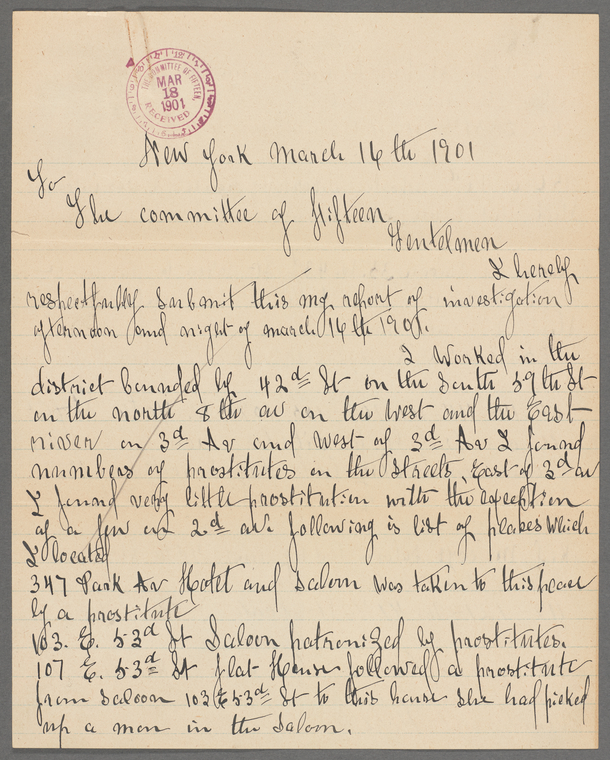 THE COMMITTEE OF FIFTEEN
MAR
18
1901
RECEIVED
New York March 16th 1901
To
The committee of Fifteen
Gentelmen
I hereby
respectfully submit this my report of investigation
afternoon and night of march 16th 1901.
I Worked in the
district bounded by 42d St on the South 59th St
on the north 8th av on the West and the East
river on 3d Av and West of 3d Av I found
numbers of prostitutes on the streets. East of 3d av
I found very little prostitution with the exception
of a few on 2d av. following is list of places which
I located
347 Park Av Hotel and Saloon was taken to this place
by a prostitute
103. E. 53d St Saloon patronized by prostitutes.
107 E. 53d St flat House followed a prostitute
from Saloon 103 E 53d St to this house she had picked
up a man in the Saloon.